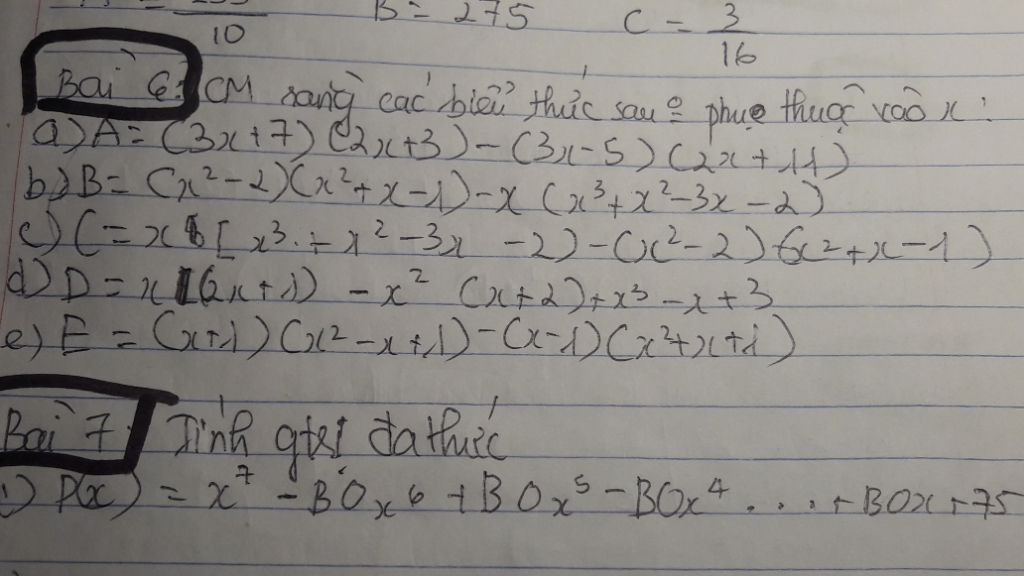 10 B = 275 C = 3/16
Bài 6: CM rằng các biểu thức sau o phụ thuộc vào x:
a) A = (3x+7)(2x+3) - (3x-5)(2x+11)
b) B = (x²-2)(x²+x-1) - x(x³+x²-3x-2)
c) C = x[x³+x²-3x-2) - (x²-2)(x²+x-1)
d) D = x(2x+1) - x²(x+2) + x³ - x + 3
e) E = (x+1)(x²-x+1) - (x-1)(x²+x+1)
Bài 7: Tính gtrị đa thức
1) P(x) = x⁷ - 80x⁶ + 80x⁵ - 80x⁴ ... + 80x + 75